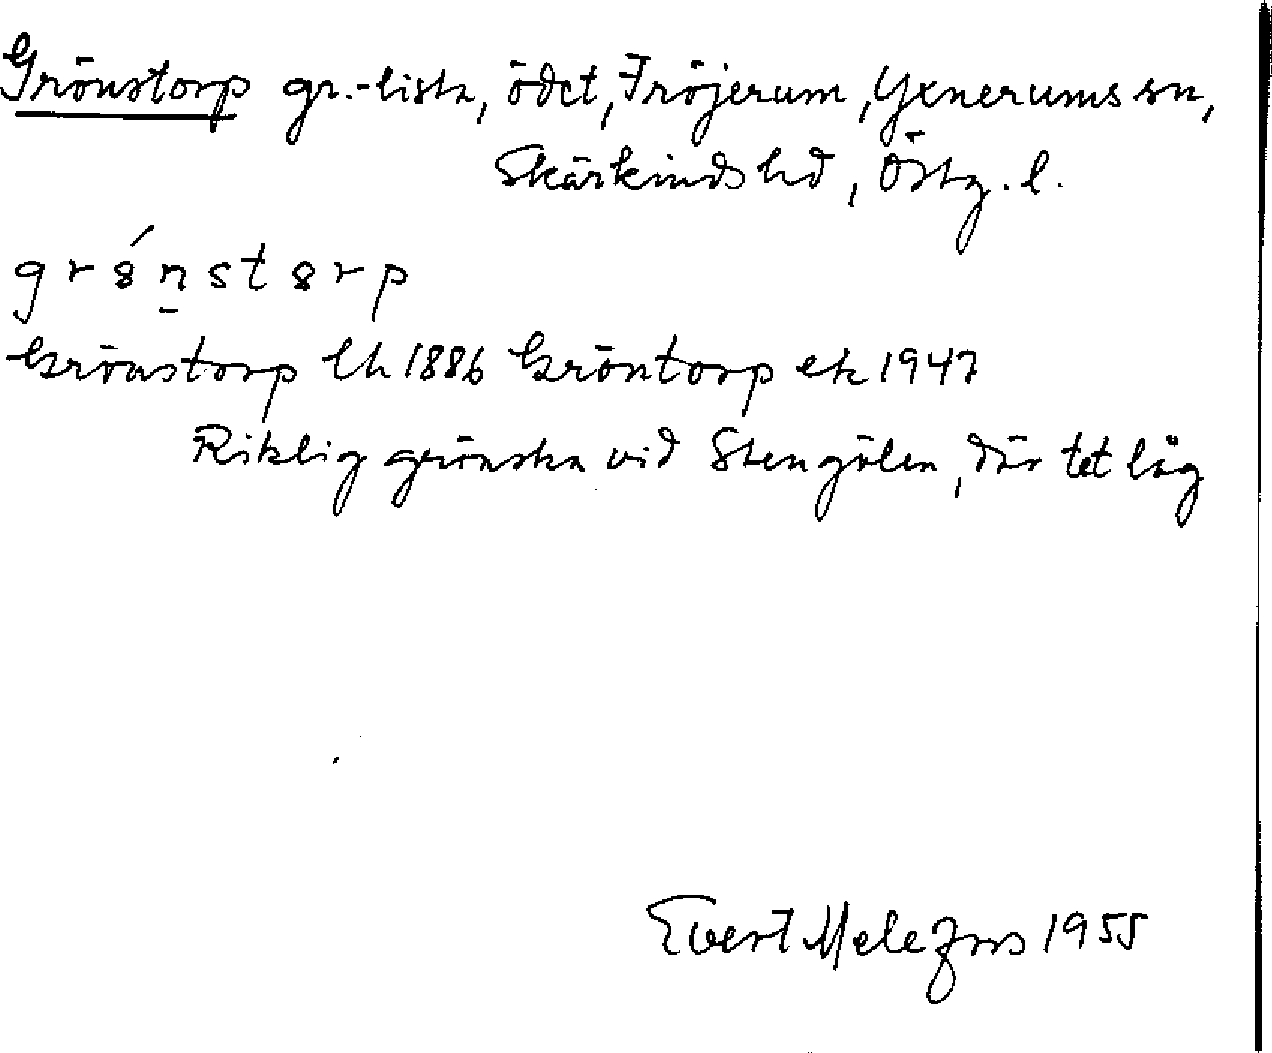 Grönstorp gr.-lista, ödet, Fröjerum, Yxnerums sn,
Skärkinds hd, Östg. l.
gr8́n̠st8rp
Grönstorp lh 1886 Gröntorp ek 1947
Riklig grönska vid Stengölen, där tet låg
Evert Melefors 1955